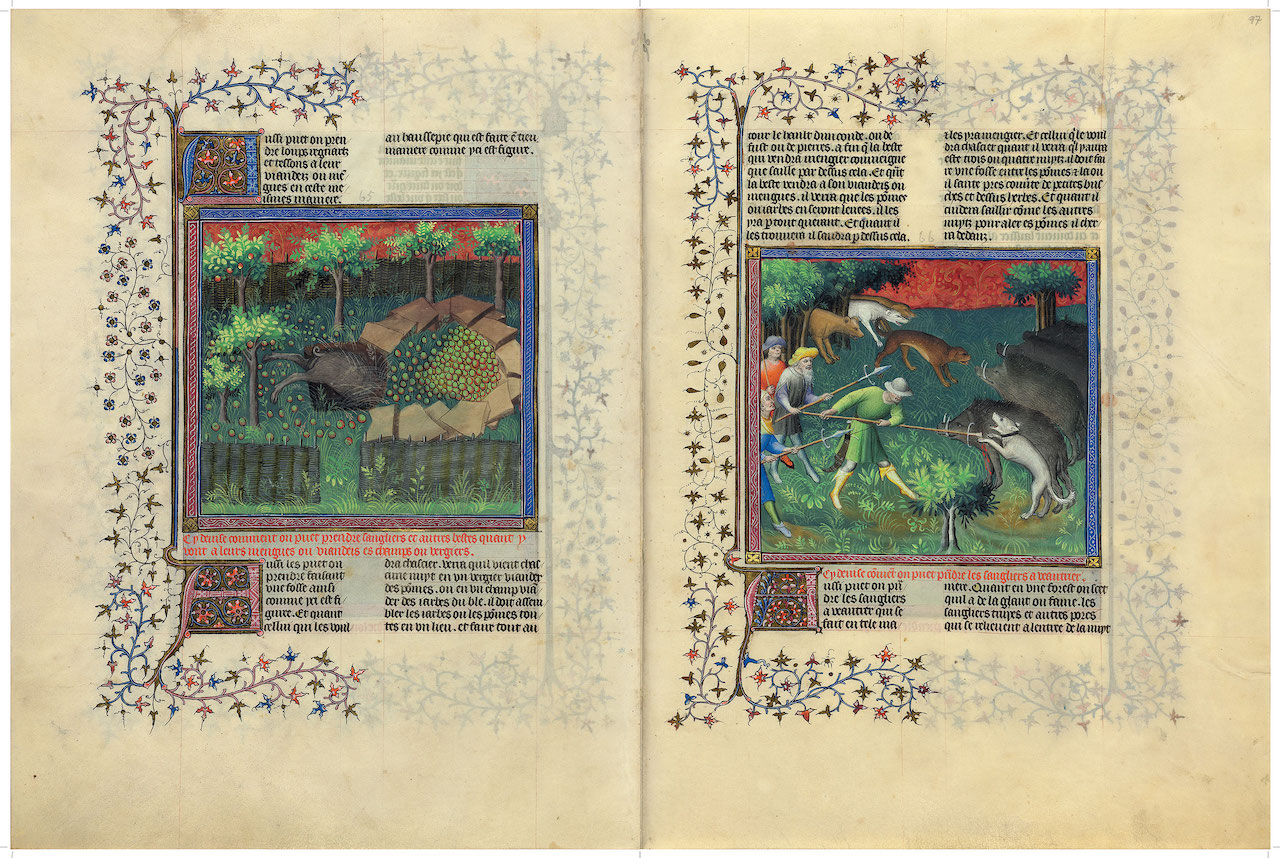 97
Aussi puet on pren
dre loups regnartz
et tessons a leur
viandeiz ou mē
gues en ceste me
ismes maniere.
au haussepie qui est faite ē tieu
maniere comme yci est figure.
Cy deuise comment on puet prendre sangliers et autres bestes quant y
vont a leurs mengues ou viandeis es champs ou vergiers.
Aussi les puet on
prendre faisant
vne fosse ainsi
comme yci est fi
gure. Et quant
cellui qui les voul
dra chascier. verra quil vient chas
cune nuyt en vn vergier viander
des pōmes. ou en vn champ vian
der des iarbes du ble. il doit assem
bler les iarbes ou les pōmes tou
tes en vn lieu. et faire tout au
tour le hault dun coude. ou de
fust ou de pierres. a fin q̄ la beste
qui vendra mengier conuiengne
que saille par dessus cela. Et q̄nt
la beste vendra a son viandeis ou
mengues. il verra que les pōmes
ou iarbes en seront leuees. il les
yra p tout querant. Et quant il
les trouuera il saudra p dessus cela.
il les yra mengier. Et cellui q̄ le voul
dra chascier quant il verra q̄l y aura
este trois ou quatre nuytz. il doit fai
re vne fosse entre les pōmes z la ou
il saute pres couuerte de petites bus
ches et dessus herbes. Et quant il
cuidera saillir cōme les autres
nuytz pour aler es pōmes il cherra
dedanz.
Cy deuise cōmēt on puet prēdre les sangliers a veautrier.
Aussi puet on pñ
dre les sangliers
a veautrer qui se
fait en tele ma
niere. Quant en vne forest on scet
quil a de la glant ou faine. les
sangliers truyes et autres porcs
qui se relieuent a lentre de la nuyt